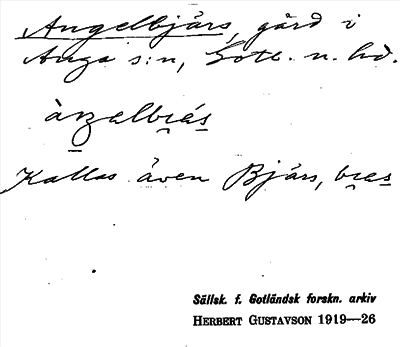 Angelbjärs, gård i
Anga s:n, Gotl. n. hd.
àŋelbrás
Kallas även Bjärs, bras
Sällsk. f. Gotländsk forskn. arkiv
HERBERT GUSTAVSON 1919—26